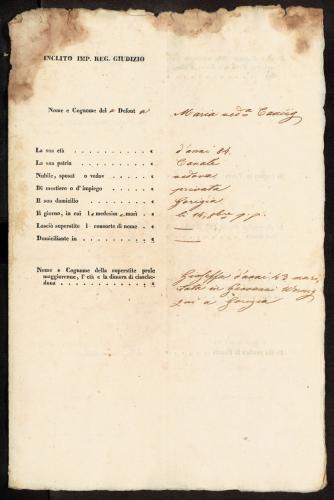 INCLITO IMP. REG. GIUDIZIO
Nome e Cognome del a Defont a Maria ved.a
La sua età d'anni 84.
La sua patria Canale
Nubile, sposat o vedov vedova
Di mestiere o d'impiego privata
Il suo domicilio Gorizia
Il giorno, in cui l medesim morì li 14, 8bre p. p.
Lasciò superstite l consorte di nome —
Domiciliante in —
Nome e Cognome della superstite prole Gioseffa d'anni 43 mari,
maggiorenne, l'età e la dimora di ciasche- tata in Giovanni
duna qui a Gorizia